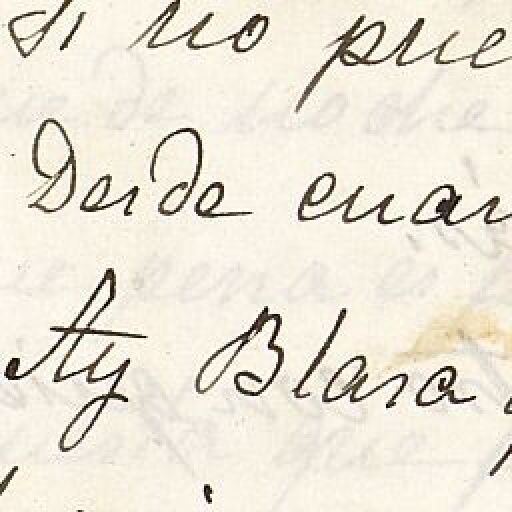 Si no pue
Desde cuan
Ay Blasa